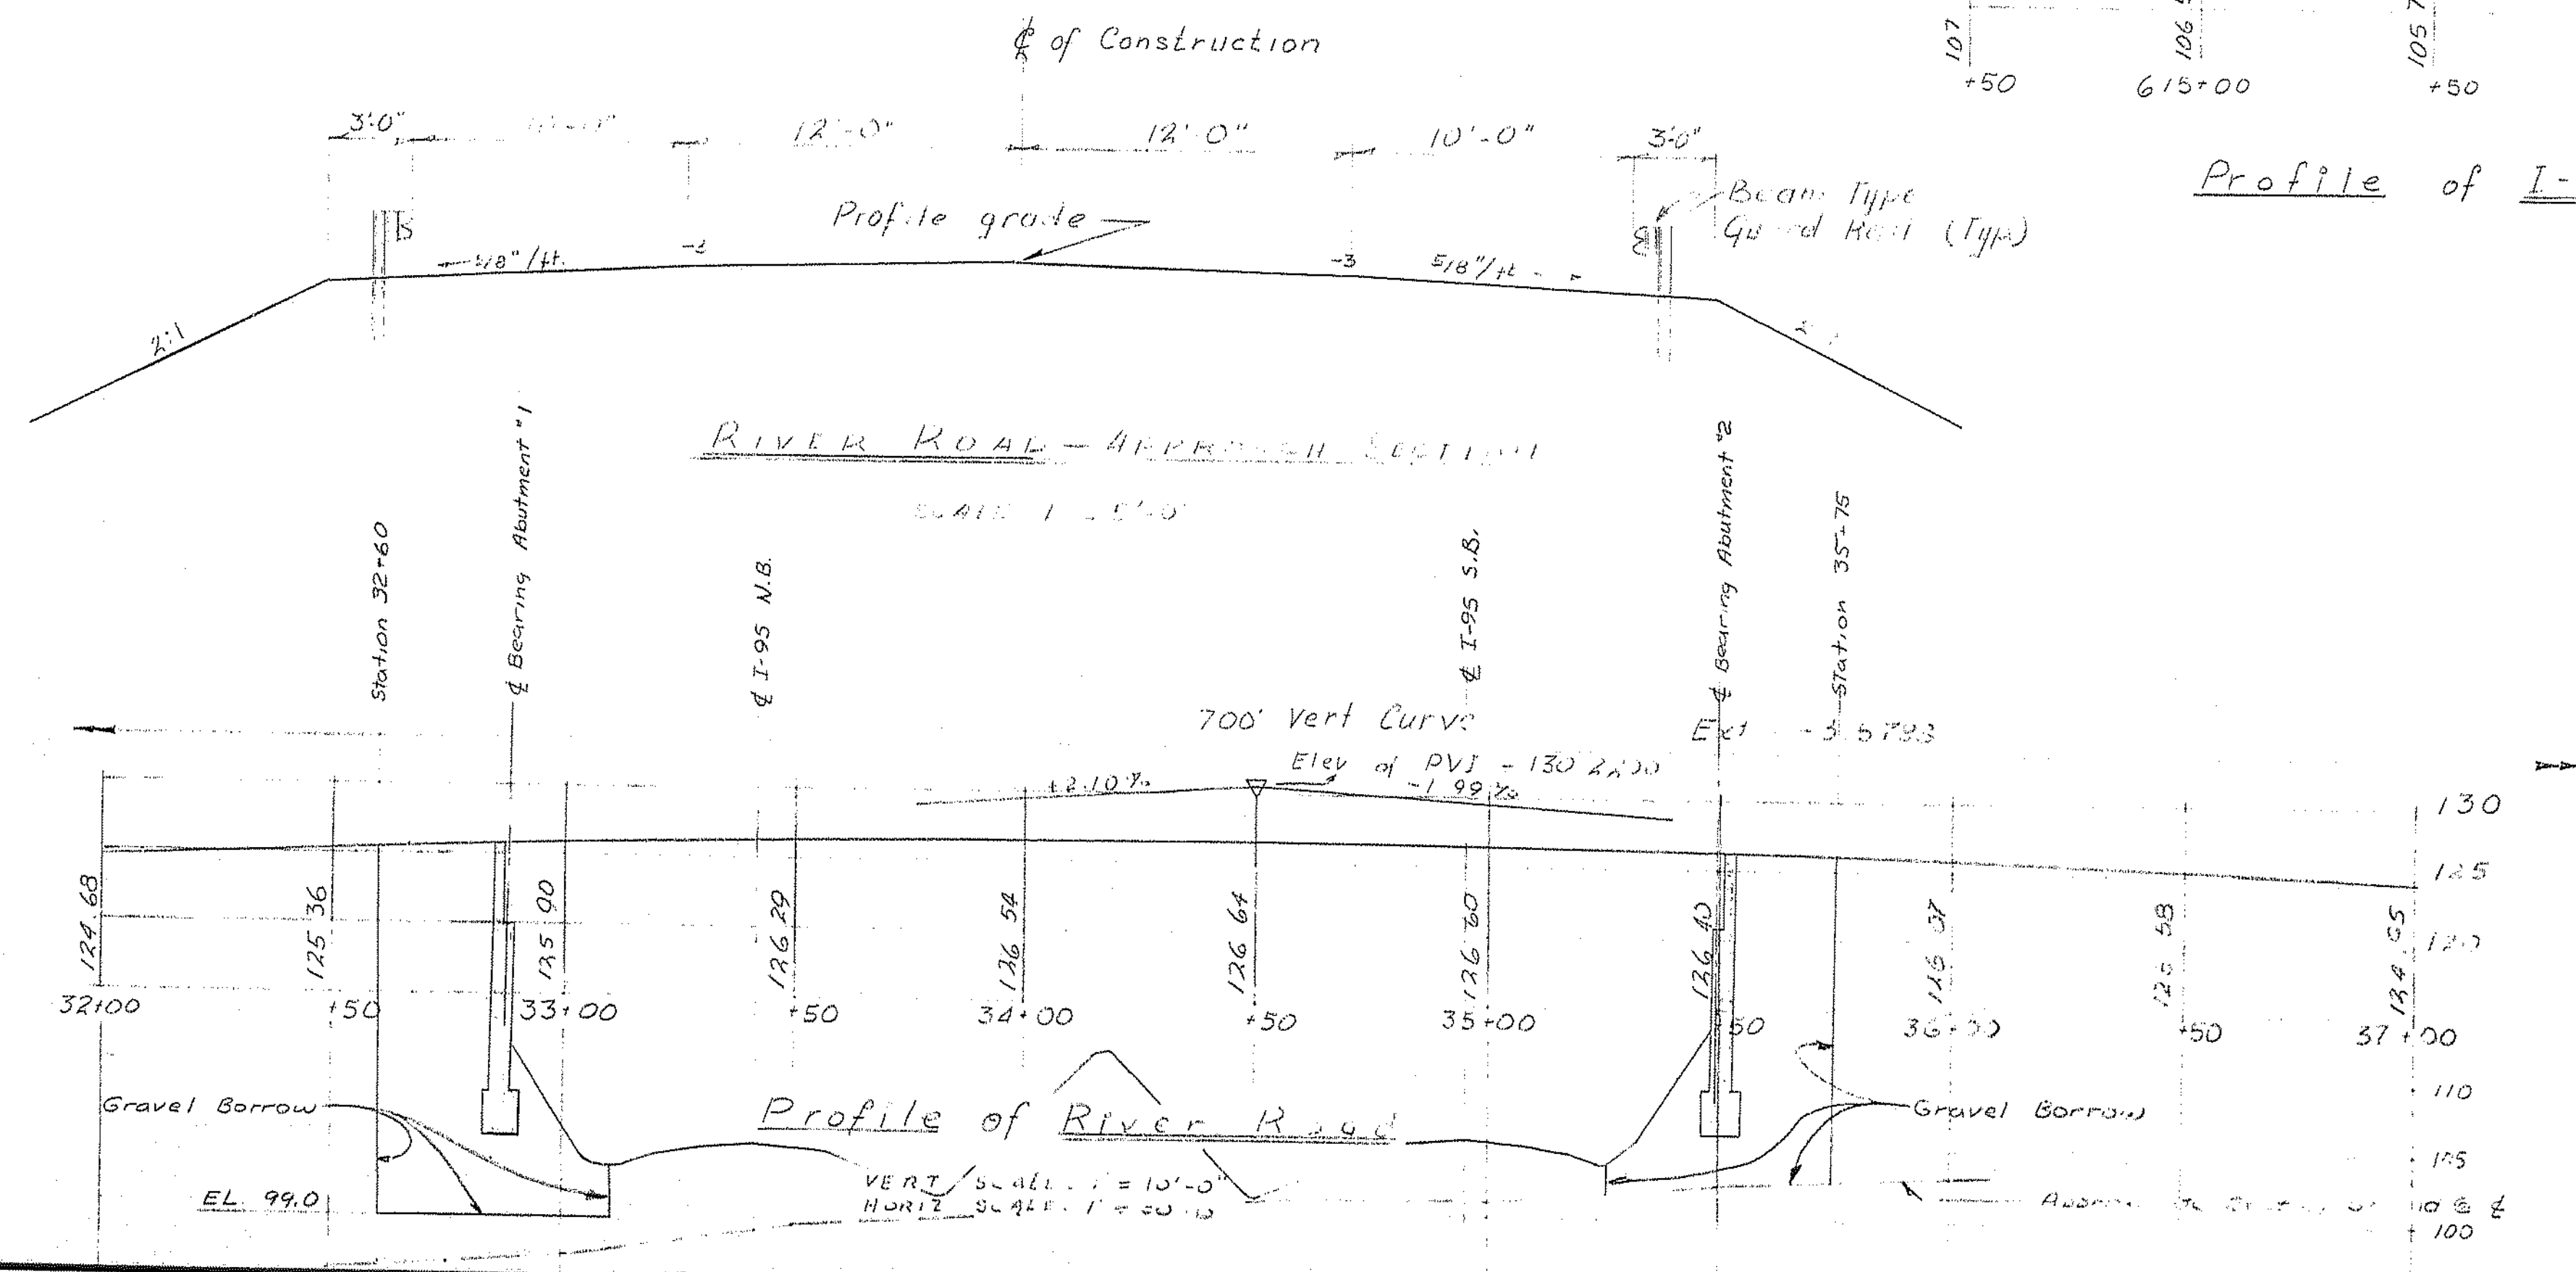 ℄ of Construction
107
106
105
+50
615+00
+50
3'-0"
12'-0"
12'-0"
10'-0"
3'-0"
Profile of I-
Beam Type
Guard Rail (Typ)
Profile grade
5/8"/ft.
-3
5/8"/ft
2:1
RIVER ROAD — APPROACH SECTION
Station 32+60
℄ Bearing Abutment #1
℄ I-95 N.B.
℄ I-95 S.B.
℄ Bearing Abutment #2
Station 35+75
700' Vert Curve
Elev of PVI = 130.2200
+2.10%
-1.99%
130
125
120
110
105
100
124.68
125.36
125.90
126.29
126.54
126.64
126.60
126.40
126.07
125.58
124.95
32+00
+50
33+00
+50
34+00
+50
35+00
+50
36+00
+50
37+00
Gravel Borrow
Profile of River Road
Gravel Borrow
VERT. SCALE: 1" = 10'-0"
HORIZ. SCALE:
EL. 99.0